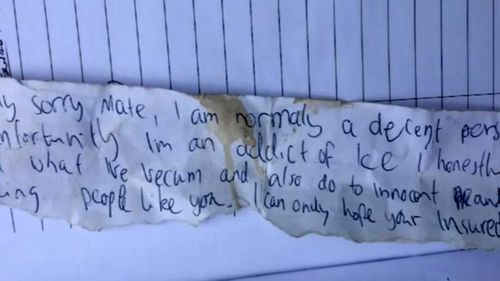 y sorry Mate, I am normaly a decent pers
nfortunitly Im an addict of Ice I honestly
what Ive becum and also do to innocent and
ing people like you. I can only hope your Insured